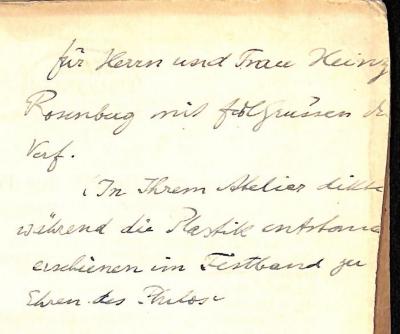 für Herrn und Frau Heinz
Rosenberg mit frdl Grüssen d
Verf.
(In Ihrem Atelier dikt
während die Plastik entstan
erschienen im Festband zu
Ehren des Philos